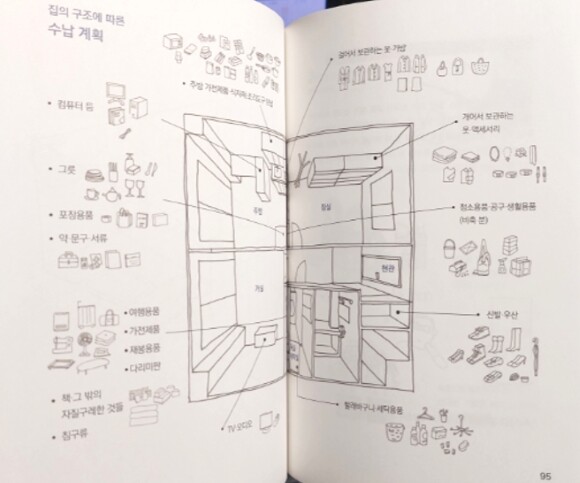 집의 구조에 따른
수납 계획
• 주방 가전제품 식자재 조리도구
• 컴퓨터 등
• 그릇
• 포장용품
• 약·문구·서류
• 여행용품
• 가전제품
• 재봉용품
• 다리미판
• 책·그 밖의
자질구레한 것들
• 침구류
TV 오디오
주방
거실
걸어서 보관하는 옷·가방
개어서 보관하는
옷·액세서리
청소용품·공구·생활용품
(비축 분)
신발·우산
빨래바구니·세탁용품
침실
현관
95